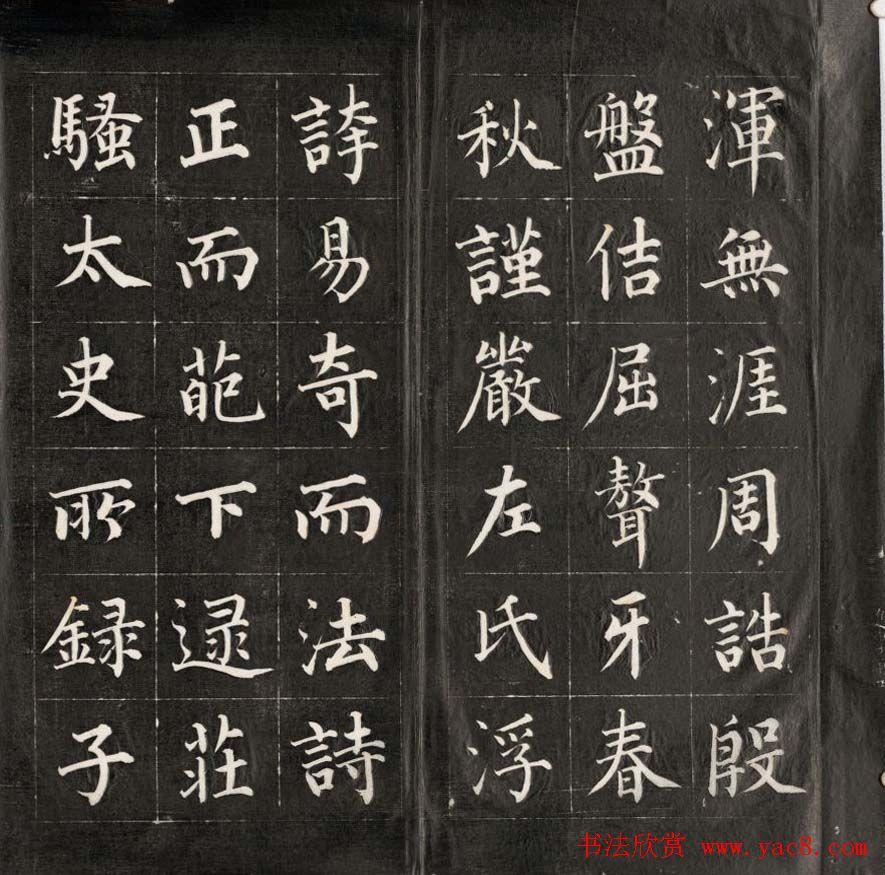 渾無涯周誥殷
盤佶屈聱牙春
秋謹嚴左氏浮
誇易奇而法詩
正而葩下逯莊
騷太史所録子
书法欣赏 www.yac8.com